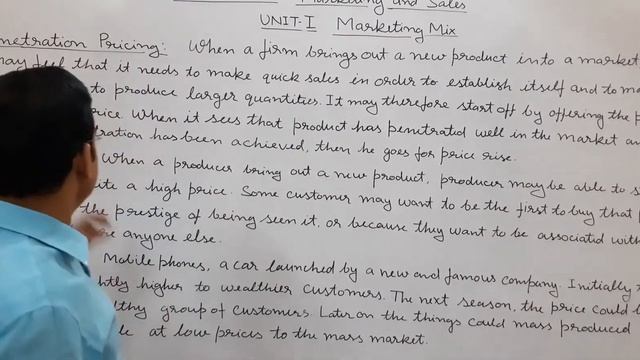 Marketing and Sales
UNIT-I Marketing Mix
netration Pricing: When a firm brings out a new product into a market
may feel that it needs to make quick sales in order to establish itself and to ma
to produce larger quantities. It may therefore start off by offering the p
rice. When it sees that product has penitrated well in the market an
tration has been achieved, then he goes for price rise.
When a producer bring out a new product, producer may be able to s
ite a high price. Some customer may want to be the first to buy that p
the prestige of being seen it, or because they want to be associatid with
re anyone else.
Mobile phones, a car launched by a new and famous company. Initially
htly higher to wealthier customers. The next season, the price could b
lthy group of customers. Later on the things could mass produced
le at low prices to the mass market.